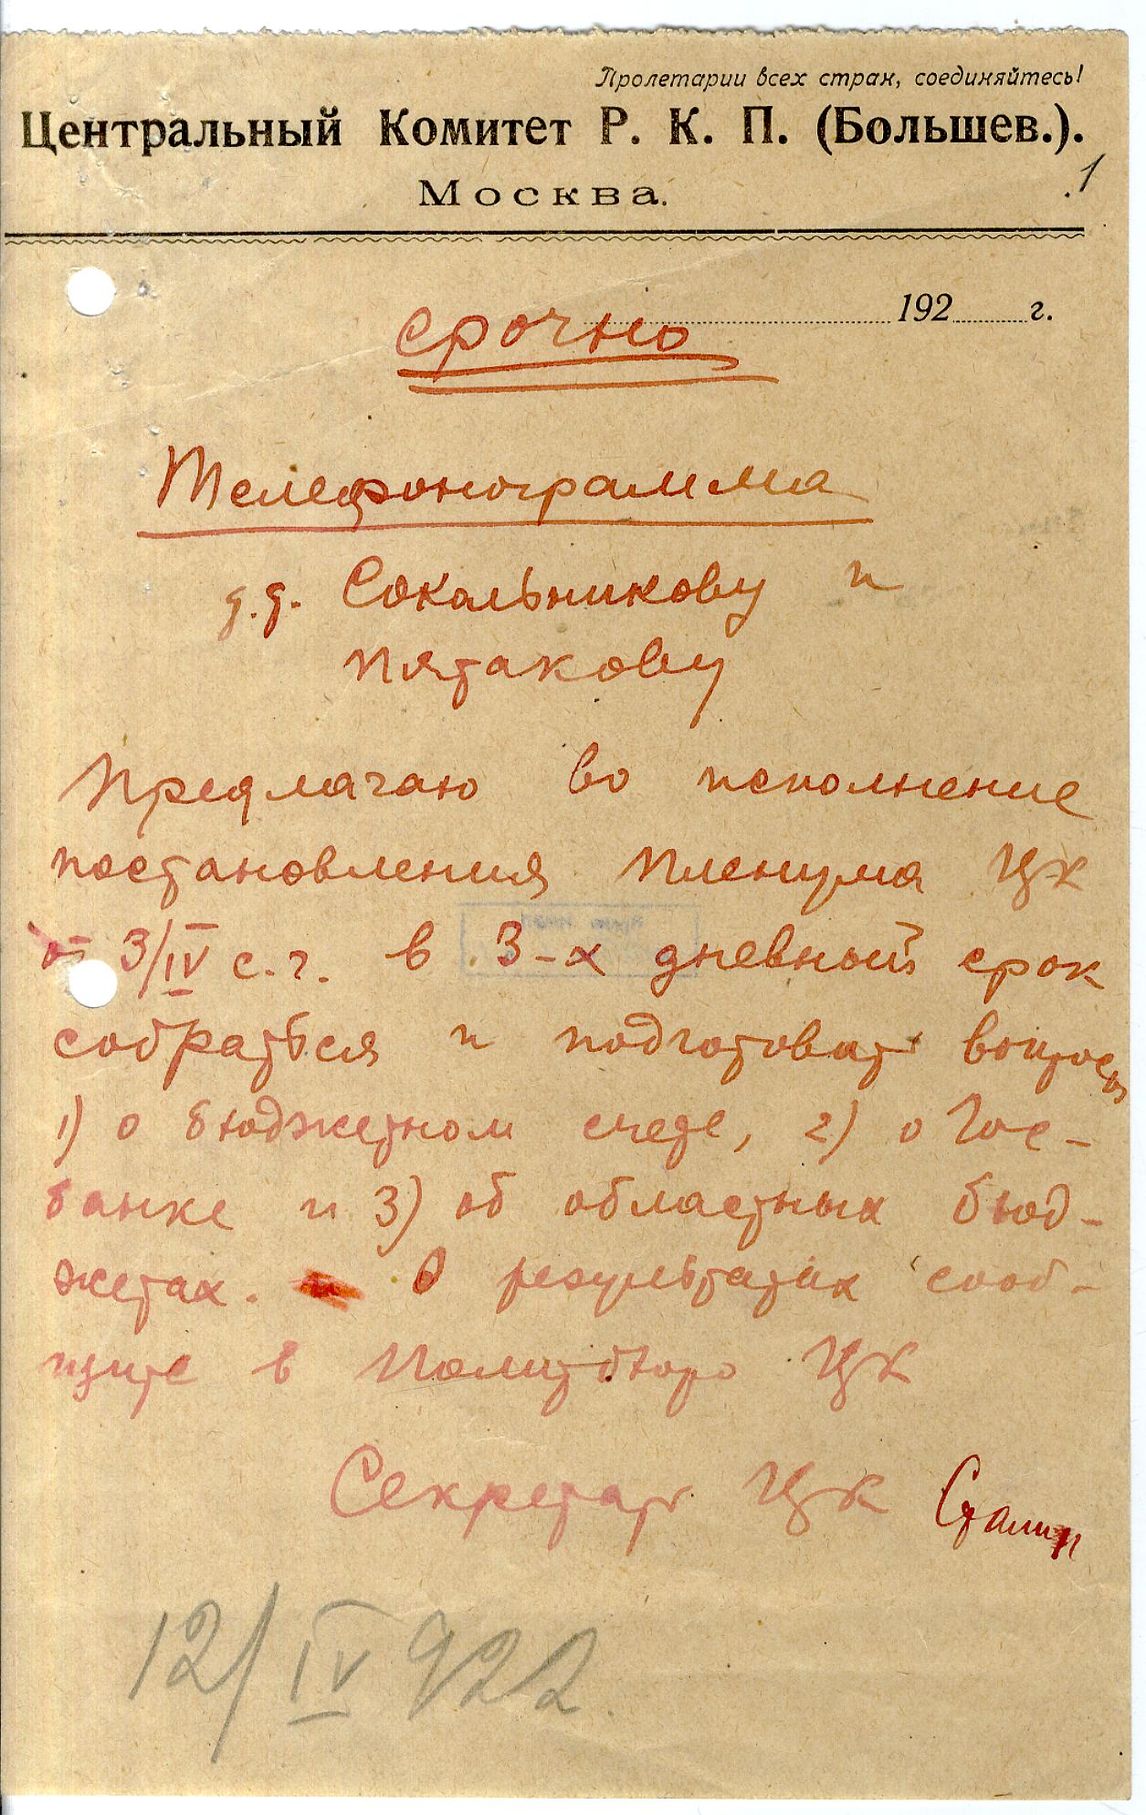 Пролетарии всех стран, соединяйтесь!
Центральный Комитет Р. К. П. (Большев.).
Москва.
1
192 г.
Срочно
Телефонограмма
т.т. Сокольникову и
Пятакову
Предлагаю во исполнение
постановления пленума ЦК
от 3/IV с.г. в 3-х дневный срок
собраться и подготовить вопросы
1) о бюджетном счете, 2) о Гос-
банке и 3) об областных бюд-
жетах. О результатах сооб-
щите в Политбюро ЦК
Секретарь ЦК Сталин
12/IV 922